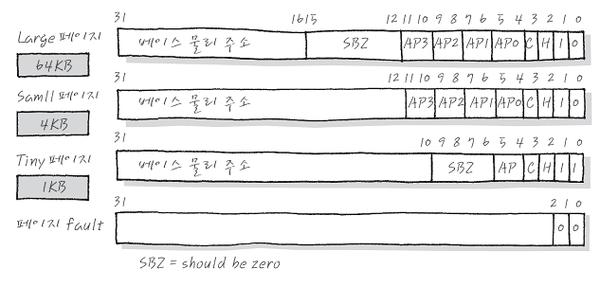 31 16 15 12 11 10 9 8 7 6 5 4 3 2 1 0
Large 페이지 베이스 물리 주소 SBZ AP3 AP2 AP1 AP0 C H 1 0
64KB
31 12 11 10 9 8 7 6 5 4 3 2 1 0
Samll 페이지 베이스 물리 주소 AP3 AP2 AP1 AP0 C H 1 0
4KB
31 10 9 8 7 6 5 4 3 2 1 0
Tiny 페이지 베이스 물리 주소 SBZ AP C H 1 1
1KB
31 2 1 0
페이지 fault 0 0
SBZ = should be zero